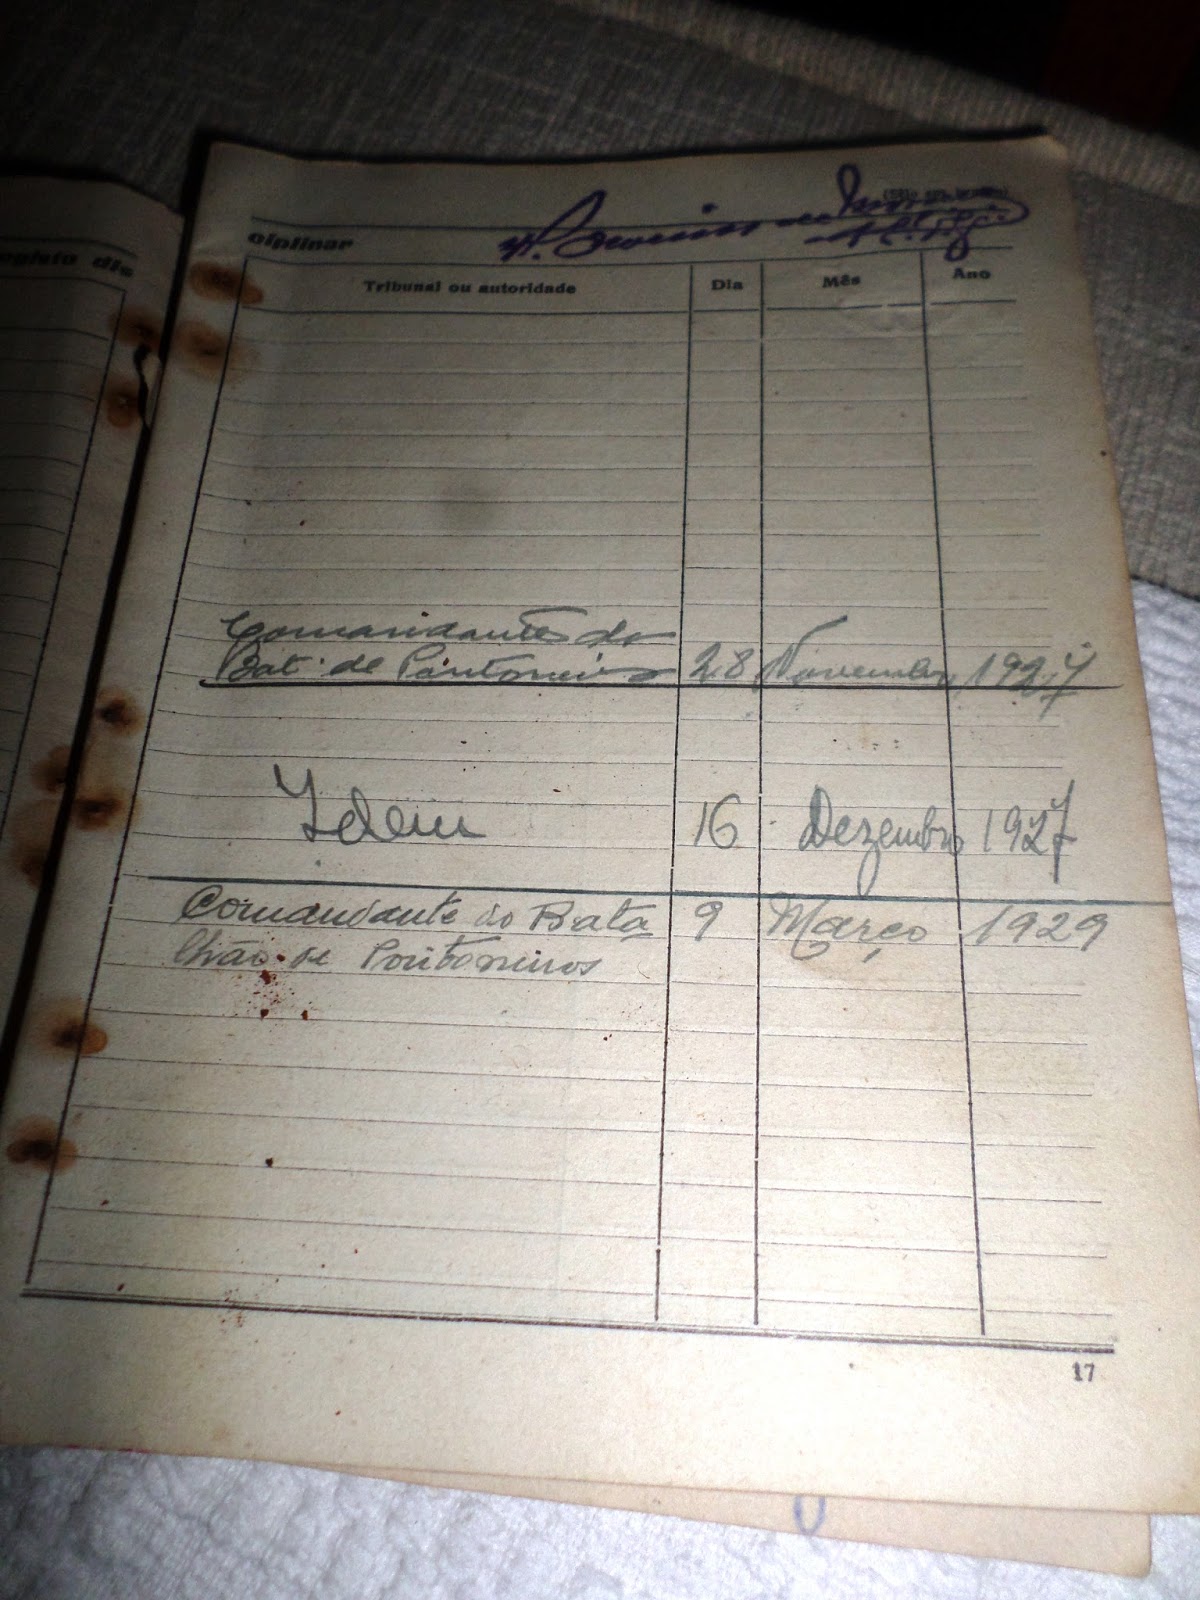 (Sêlo em branco)
mpleto dis
ciplinar
Tribunal ou autoridade Dia Mês Ano
Comandante do
Bat. de Pontoneiros 28 Novembro 1927
Idem 16 Dezembro 1927
Comandante do Bata 9 Março 1929
lhão de Pontoneiros
17